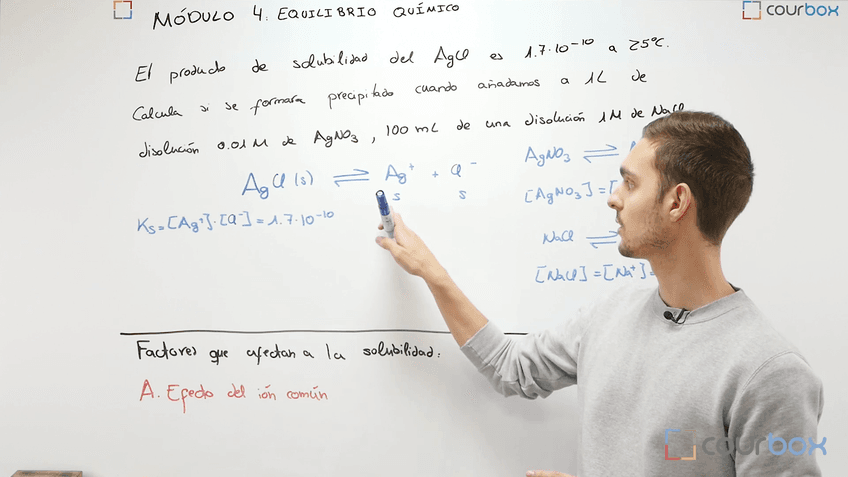 MÓDULO 4: EQUILIBRIO QUÍMICO
courbox
El producto de solubilidad del AgCl es 1.7·10⁻¹⁰ a 25ºC.
Calcula si se formara precipitado cuando añadamos a 1L de
disolución 0.01M de AgNO₃, 100 mL de una disolución 1M de NaCl
AgCl (s) ⇌ Ag⁺ + Cl⁻
s s
Ks=[Ag⁺]·[Cl⁻]=1.7·10⁻¹⁰
AgNO₃ ⇌
[AgNO₃]=[
NaCl ⇌
[NaCl]=[Na⁺]=
Factores que afectan a la solubilidad:
A. Efecto del ión común
courbox